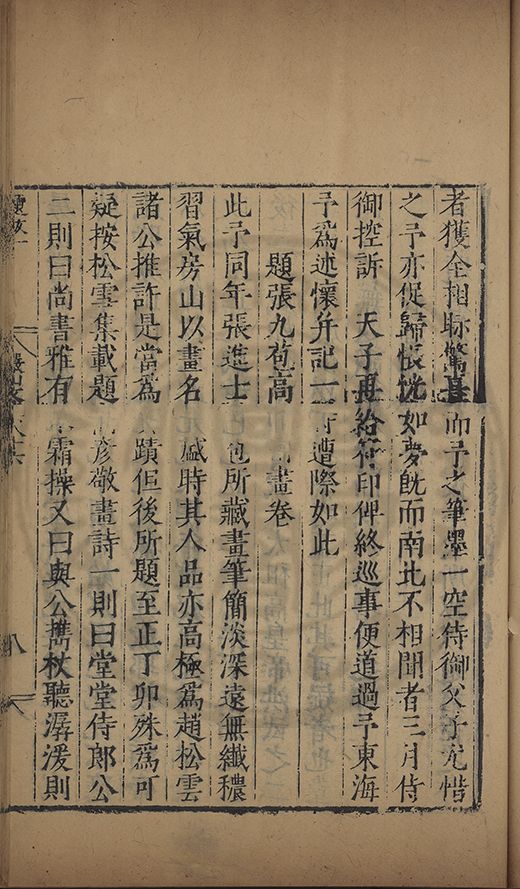 者獲全相眎驚甚而予之筆墨一空侍御父子尤惜
之予亦促歸悵恍如夢旣而南北不相聞者三月侍
御控訴 天子再給符印俾終巡事便道過予東海
予爲述懷幷記一時遭際如此
題張九苞高畫卷
此予同年張進士九苞所藏畫筆簡淡深遠無纖穠
習氣房山以畫名元盛時其人品亦高極爲趙松雲
諸公推許是當爲眞蹟但後所題至正丁卯殊爲可
疑按松雪集載題彥敬畫詩一則曰堂堂侍郎公
二則曰尚書雅有冰霜操又曰與公攜杖聽潺湲則
八